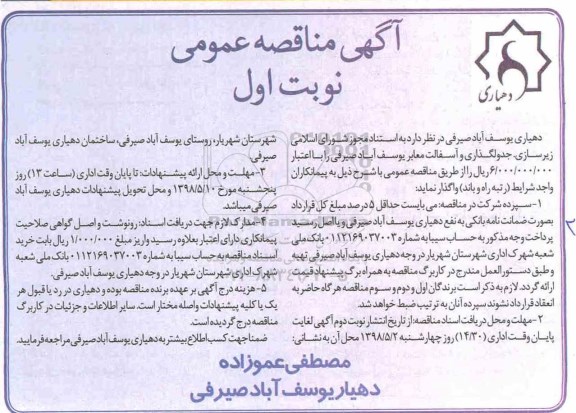 آگهی مناقصه عمومی
نوبت اول
دهیاری
دهیاری یوسف آباد صیرفی در نظر دارد به استناد مجوز شورای اسلامی
زیرسازی، جدولگذاری و آسفالت معابر یوسف آباد صیرفی را با اعتبار
۶/۰۰۰/۰۰۰/۰۰۰ ریال را از طریق مناقصه عمومی با شرح ذیل به پیمانکاران
واجد شرایط (رتبه راه و باند) واگذار نماید:
۱-سپرده شرکت در مناقصه: می بایست حداقل ۵ درصد مبلغ کل قرارداد
بصورت ضمانت نامه بانکی به نفع دهیاری یوسف آباد صیرفی و یا اصل رسید
پرداخت وجه مذکور به حساب سیبا به شماره ۰۱۱۲۱۶۹۰۳۷۰۰۳ بانک ملی
شعبه شهرک اداری شهرستان شهریار در وجه دهیاری یوسف آباد صیرفی تهیه
و طبق دستورالعمل مندرج در کاربرگ مناقصه به همراه برگ پیشنهاد قیمت
ارائه گردد. لازم به ذکر است برندگان اول و دوم و سوم مناقصه هر گاه حاضر به
انعقاد قرارداد نشوند سپرده آنان به ترتیب ضبط خواهد شد.
۲-مهلت و محل دریافت اسناد مناقصه: از تاریخ انتشار نوبت دوم آگهی لغایت
پایان وقت اداری (۱۴/۳۰) روز چهارشنبه ۱۳۹۸/۵/۲ محل آن به نشانی:
شهرستان شهریار، روستای یوسف آباد صیرفی، ساختمان دهیاری یوسف آباد
صیرفی.
۳-مهلت و محل ارائه پیشنهادات: تا پایان وقت اداری (ساعت ۱۳) روز
پنجشنبه مورخ ۱۳۹۸/۵/۱۰ و محل تحویل پیشنهادات دهیاری یوسف آباد
صیرفی میباشد.
۴-مدارک لازم جهت دریافت اسناد: رونوشت و اصل گواهی صلاحیت
پیمانکاری دارای اعتبار بعلاوه رسید واریز مبلغ ۱/۰۰۰/۰۰۰ ریال بابت خرید
اسناد مناقصه به حساب سیبا به شماره ۰۱۱۲۱۶۹۰۳۷۰۰۳ بانک ملی شعبه
شهرک اداری شهرستان شهریار در وجه دهیاری یوسف آباد صیرفی.
۵-هزینه درج آگهی بر عهده برنده مناقصه بوده و دهیاری در رد یا قبول هر
یک یا کلیه پیشنهادات واصله مختار است. سایر اطلاعات و جزئیات در کاربرگ
مناقصه درج گردیده است.
ضمنا جهت کسب اطلاع بیشتر به دهیاری یوسف آباد صیرفی مراجعه فرمایید.
مصطفی عموزاده
دهیار یوسف آباد صیرفی